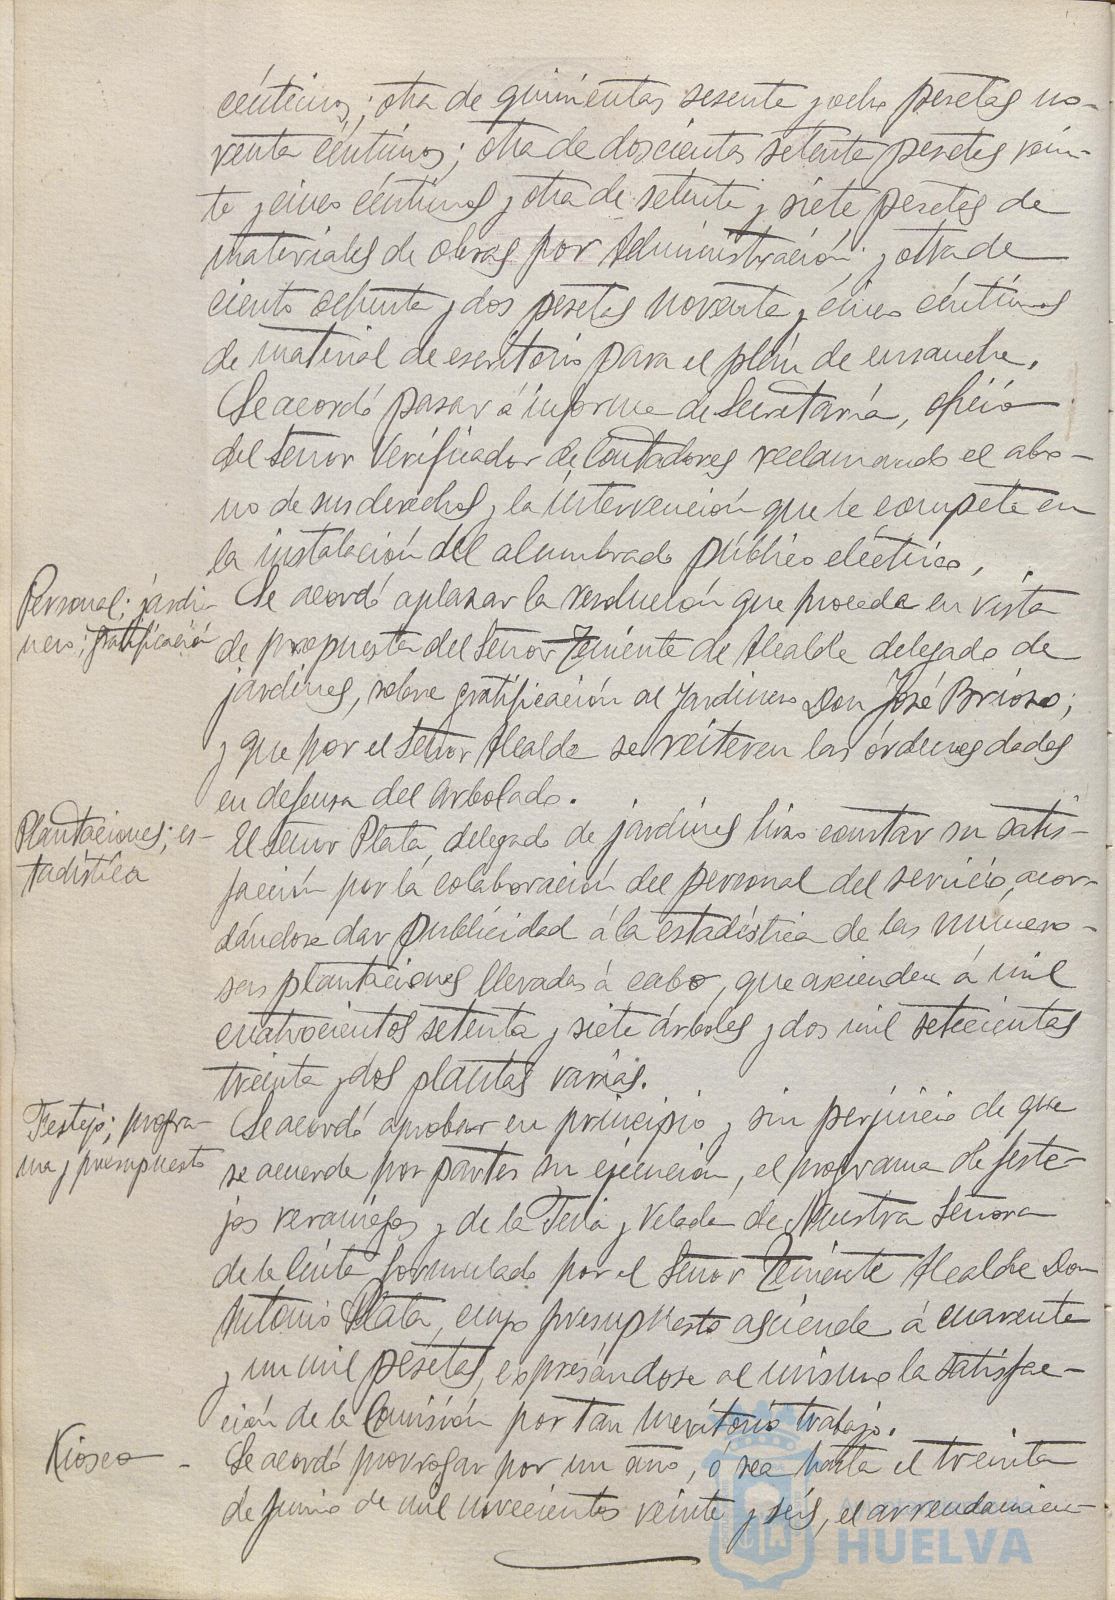 céntimos; otra de quinientas sesenta y ocho pesetas no-
venta céntimos; otra de doscientas setenta pesetas vein-
te y cinco céntimos y otra de setenta y siete pesetas de
materiales de obras por Administración; y otra de
ciento ochenta y dos pesetas noventa y cinco céntimos
de material de escritorio para el plán de ensanche.
Se acordó pasar á informe de Secretaría, oficio
del Señor Verificador de Contadores reclamando el abo-
no de sus derechos y la intervención que le compete en
la instalación del alumbrado público eléctrico.
Personal; jardi-
nero; gratificación
Se acordó aplazar la resolución que proceda en vista
de propuesta del Señor Teniente de Alcalde delegado de
jardines, sobre gratificación al Jardinero Don José Brioso;
y que por el Señor Alcalde se reiteren las órdenes dadas
en defensa del arbolado.
Plantaciones; es-
tadística
El Señor Plata, delegado de jardines hizo constar su satis-
facción por la colaboración del personal del servicio, acor-
dándose dar publicidad á la estadística de las numero-
sas plantaciones llevadas á cabo, que ascienden á mil
cuatrocientos setenta y siete árboles y dos mil setecientas
treinta y dos plantas varias.
Festejos; progra-
ma y presupuesto
Se acordó aprobar en principio y sin perjuicio de que
se acuerde por partes su ejecución, el programa de feste-
jos veraniegos y de la Feria y Velada de Nuestra Señora
de la Cinta formulado por el Señor Teniente Alcalde Don
Antonio Plata, cuyo presupuesto asciende á cuarenta
y un mil pesetas, expresándose al mismo la satisfac-
ción de la Comisión por tan meritorio trabajo.
Kiosco -
Se acordó prorrogar por un año, ó sea hasta el treinta
de Junio de mil novecientos veinte y seis, el arrendamien-
HUELVA